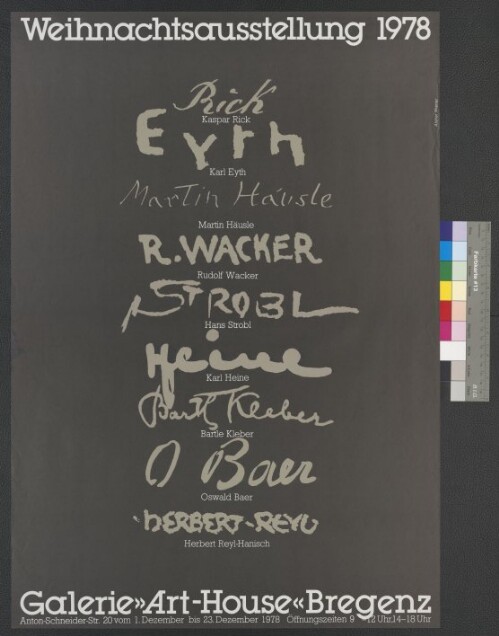 Weihnachtsausstellung 1978
Rick
Kaspar Rick
Eyth
Karl Eyth
Martin Häusle
Martin Häusle
R. WACKER
Rudolf Wacker
STROBL
Hans Strobl
Heine
Karl Heine
Bartle Kleber
Bartle Kleber
O Baer
Oswald Baer
HERBERT-REYL
Herbert Reyl-Hanisch
Galerie»Art-House«Bregenz
Anton-Schneider-Str. 20 vom 1. Dezember bis 23. Dezember 1978 Öffnungszeiten 9-12 Uhr, 14-18 Uhr